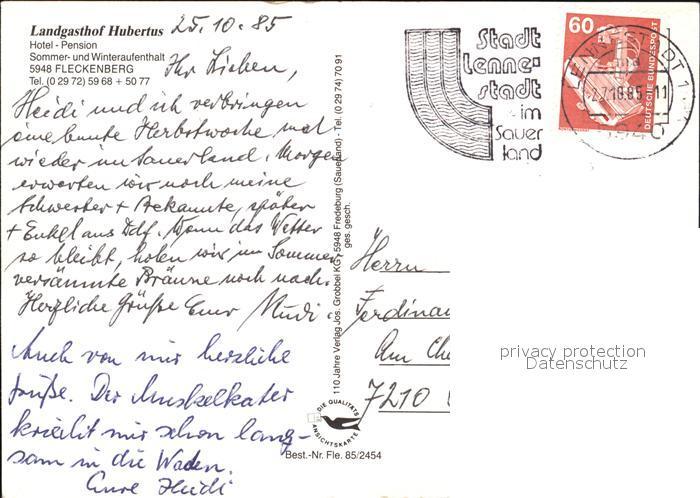 Landgasthof Hubertus
Hotel - Pension
Sommer- und Winteraufenthalt
5948 FLECKENBERG
Tel. (0 29 72) 59 68 + 50 77
25.10.85
Ihr Lieben,
Heidi und ich verbringen
eine bunte Herbstwoche mal
wieder im Sauerland. Morgen
erwarten wir noch meine
Schwester + Bekannte, später
+ Enkel aus Ddf. Wenn das Wetter
so bleibt, holen wir im Sommer
versäumte Bräune noch nach.
Herzliche Grüße Euer Rudi.
Auch von mir herzliche
Grüße. Der Muskelkater
kriecht mir schon lang-
sam in die Waden.
Eure Heidi
110 Jahre Verlag Jos. Grobbel KG, 5948 Fredeburg (Sauerland) - Tel. (0 29 74) 70 91
ges. gesch.
DIE QUALITÄTS
ANSICHTSKARTE
Best.-Nr. Fle. 85/2454
Stadt
Lenne-
stadt
im
Sauer
land
60
DEUTSCHE BUNDESPOST
LENNESTADT 1
5940
Herrn
Ferdinan
Am
7210
privacy protection
Datenschutz